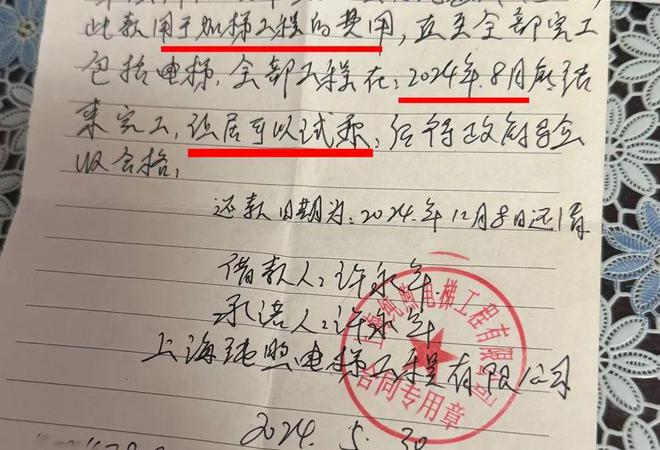 此款用于加梯工程的费用,直至全部完工
包括电梯,全部工程在:2024年.8月前结
束完工,让居可以试乘,后得政府导会
收合格,
还款日期为:2024.年12月8日还清
借款人:许永年.
承诺人:许永年
上海 电梯工程有限公司
电梯工程有限公司
合同专用章
2024.5.30